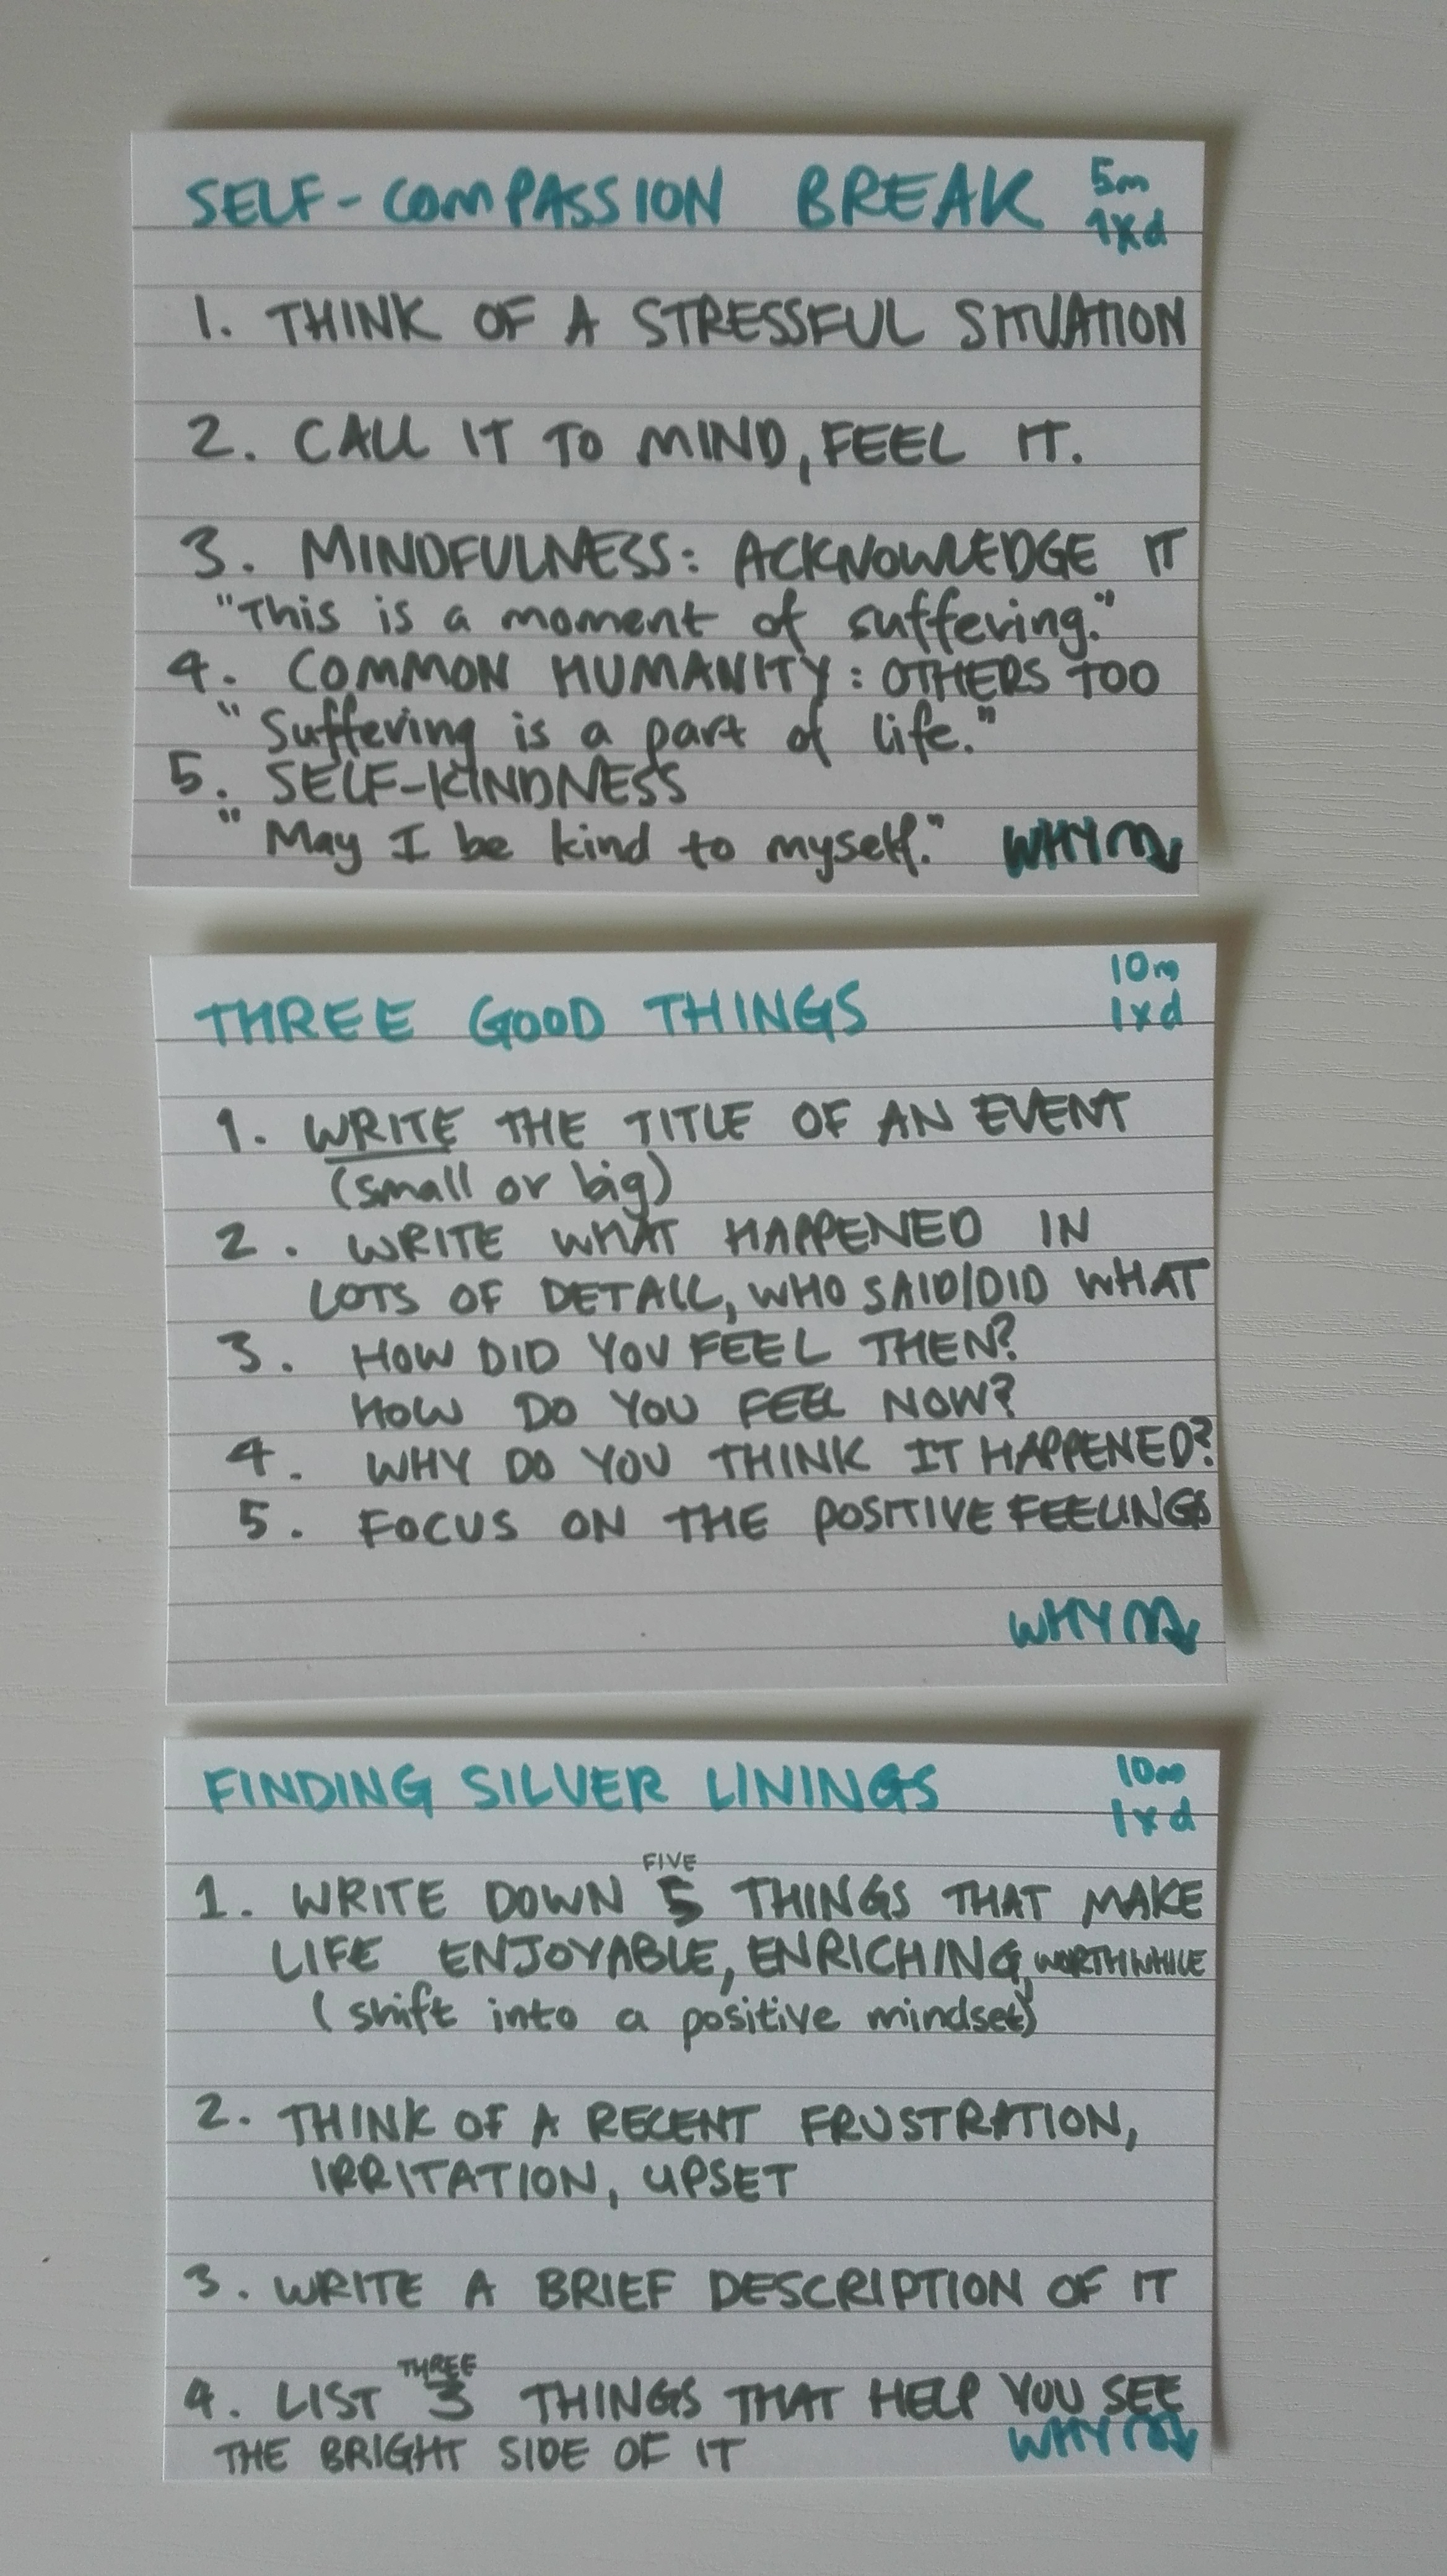 SELF-COMPASSION BREAK 5m
1xd
1. THINK OF A STRESSFUL SITUATION
2. CALL IT TO MIND, FEEL IT.
3. MINDFULNESS: ACKNOWLEDGE IT
"This is a moment of suffering."
4. COMMON HUMANITY: OTHERS TOO
"Suffering is a part of life."
5. SELF-KINDNESS
"May I be kind to myself." WHY
THREE GOOD THINGS 10m
1xd
1. WRITE THE TITLE OF AN EVENT
(small or big)
2. WRITE WHAT HAPPENED IN
LOTS OF DETAIL, WHO SAID/DID WHAT
3. HOW DID YOU FEEL THEN?
HOW DO YOU FEEL NOW?
4. WHY DO YOU THINK IT HAPPENED?
5. FOCUS ON THE POSITIVE FEELINGS
WHY
FINDING SILVER LININGS 10m
1xd
FIVE
1. WRITE DOWN 5 THINGS THAT MAKE
LIFE ENJOYABLE, ENRICHING, WORTHWHILE
(shift into a positive mindset)
2. THINK OF A RECENT FRUSTRATION,
IRRITATION, UPSET
3. WRITE A BRIEF DESCRIPTION OF IT
THREE
4. LIST 3 THINGS THAT HELP YOU SEE
THE BRIGHT SIDE OF IT WHY